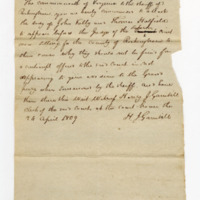 The Commonwealth of Virginia to the Sheriff of
Rockingham you are hereby commanded to
the body of John Kelly and Thomas
to appear before the Judge of the
for the County of Rockingham to
show cause why they should not be fined for
a contempt offered to the said Court in not
appearing to give evidence to the Grand
jury when summoned by the sheriff and have
then there this writ Witness Henry J. Gambill
clerk of the said Court at the court house the
26 April 1809
H J Gambill